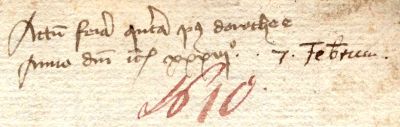 Actum feria quinta p9 dorothee
Anno dni xxxvi° . 7. Februar.
1610